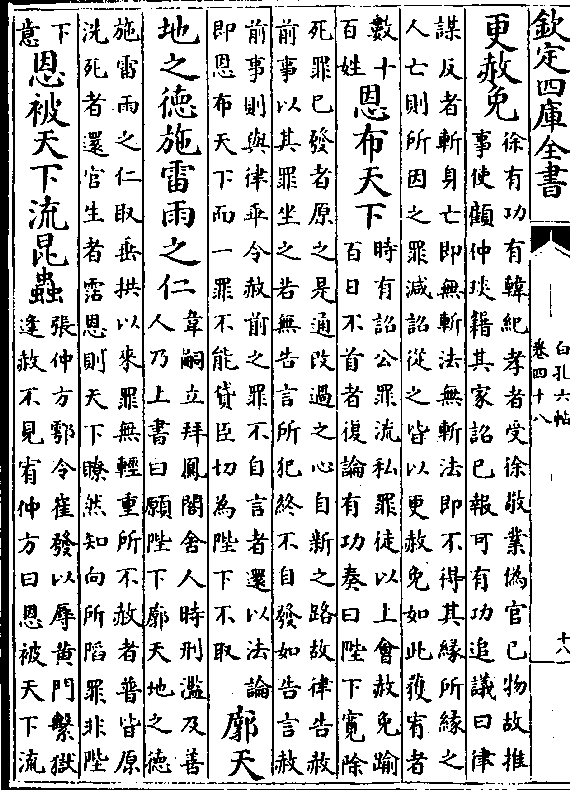 欽定四庫全書
白孔六帖
卷四十八
十八
更赦免
徐有功有韓紀孝者受徐敬業偽官已物故推
事使顧仲琰籍其家詔已報可有功追議曰律
謀反者斬身亡即無斬法無斬法即不得其緣所緣之
人亡則所因之罪減詔從之皆以更赦免如此獲宥者
數十
百姓
恩布天下
時有詔公罪流私罪徒以上會赦免踰
百日不首者復論有功奏曰陛下寬除
死罪已發者原之是通改過之心自新之路故律告赦
前事以其罪坐之若無告言所犯終不自發如告言赦
前事則與律乖令赦前之罪不自言者還以法論
即恩布天下而一罪不能貸臣切為陛下不取
廓天
地之德施雷雨之仁
韋嗣立拜鳳閣舍人時刑濫及善
人乃上書曰願陛下廓天地之德
施雷雨之仁取垂拱以來罪無輕重所不赦者普皆原
洗死者還官生者霑恩則天下瞭然知向所陷罪非陛
下
意
恩被天下流昆蟲
張仲方鄠令崔發以辱黃門繫獄
逢赦不見宥仲方曰恩被天下流